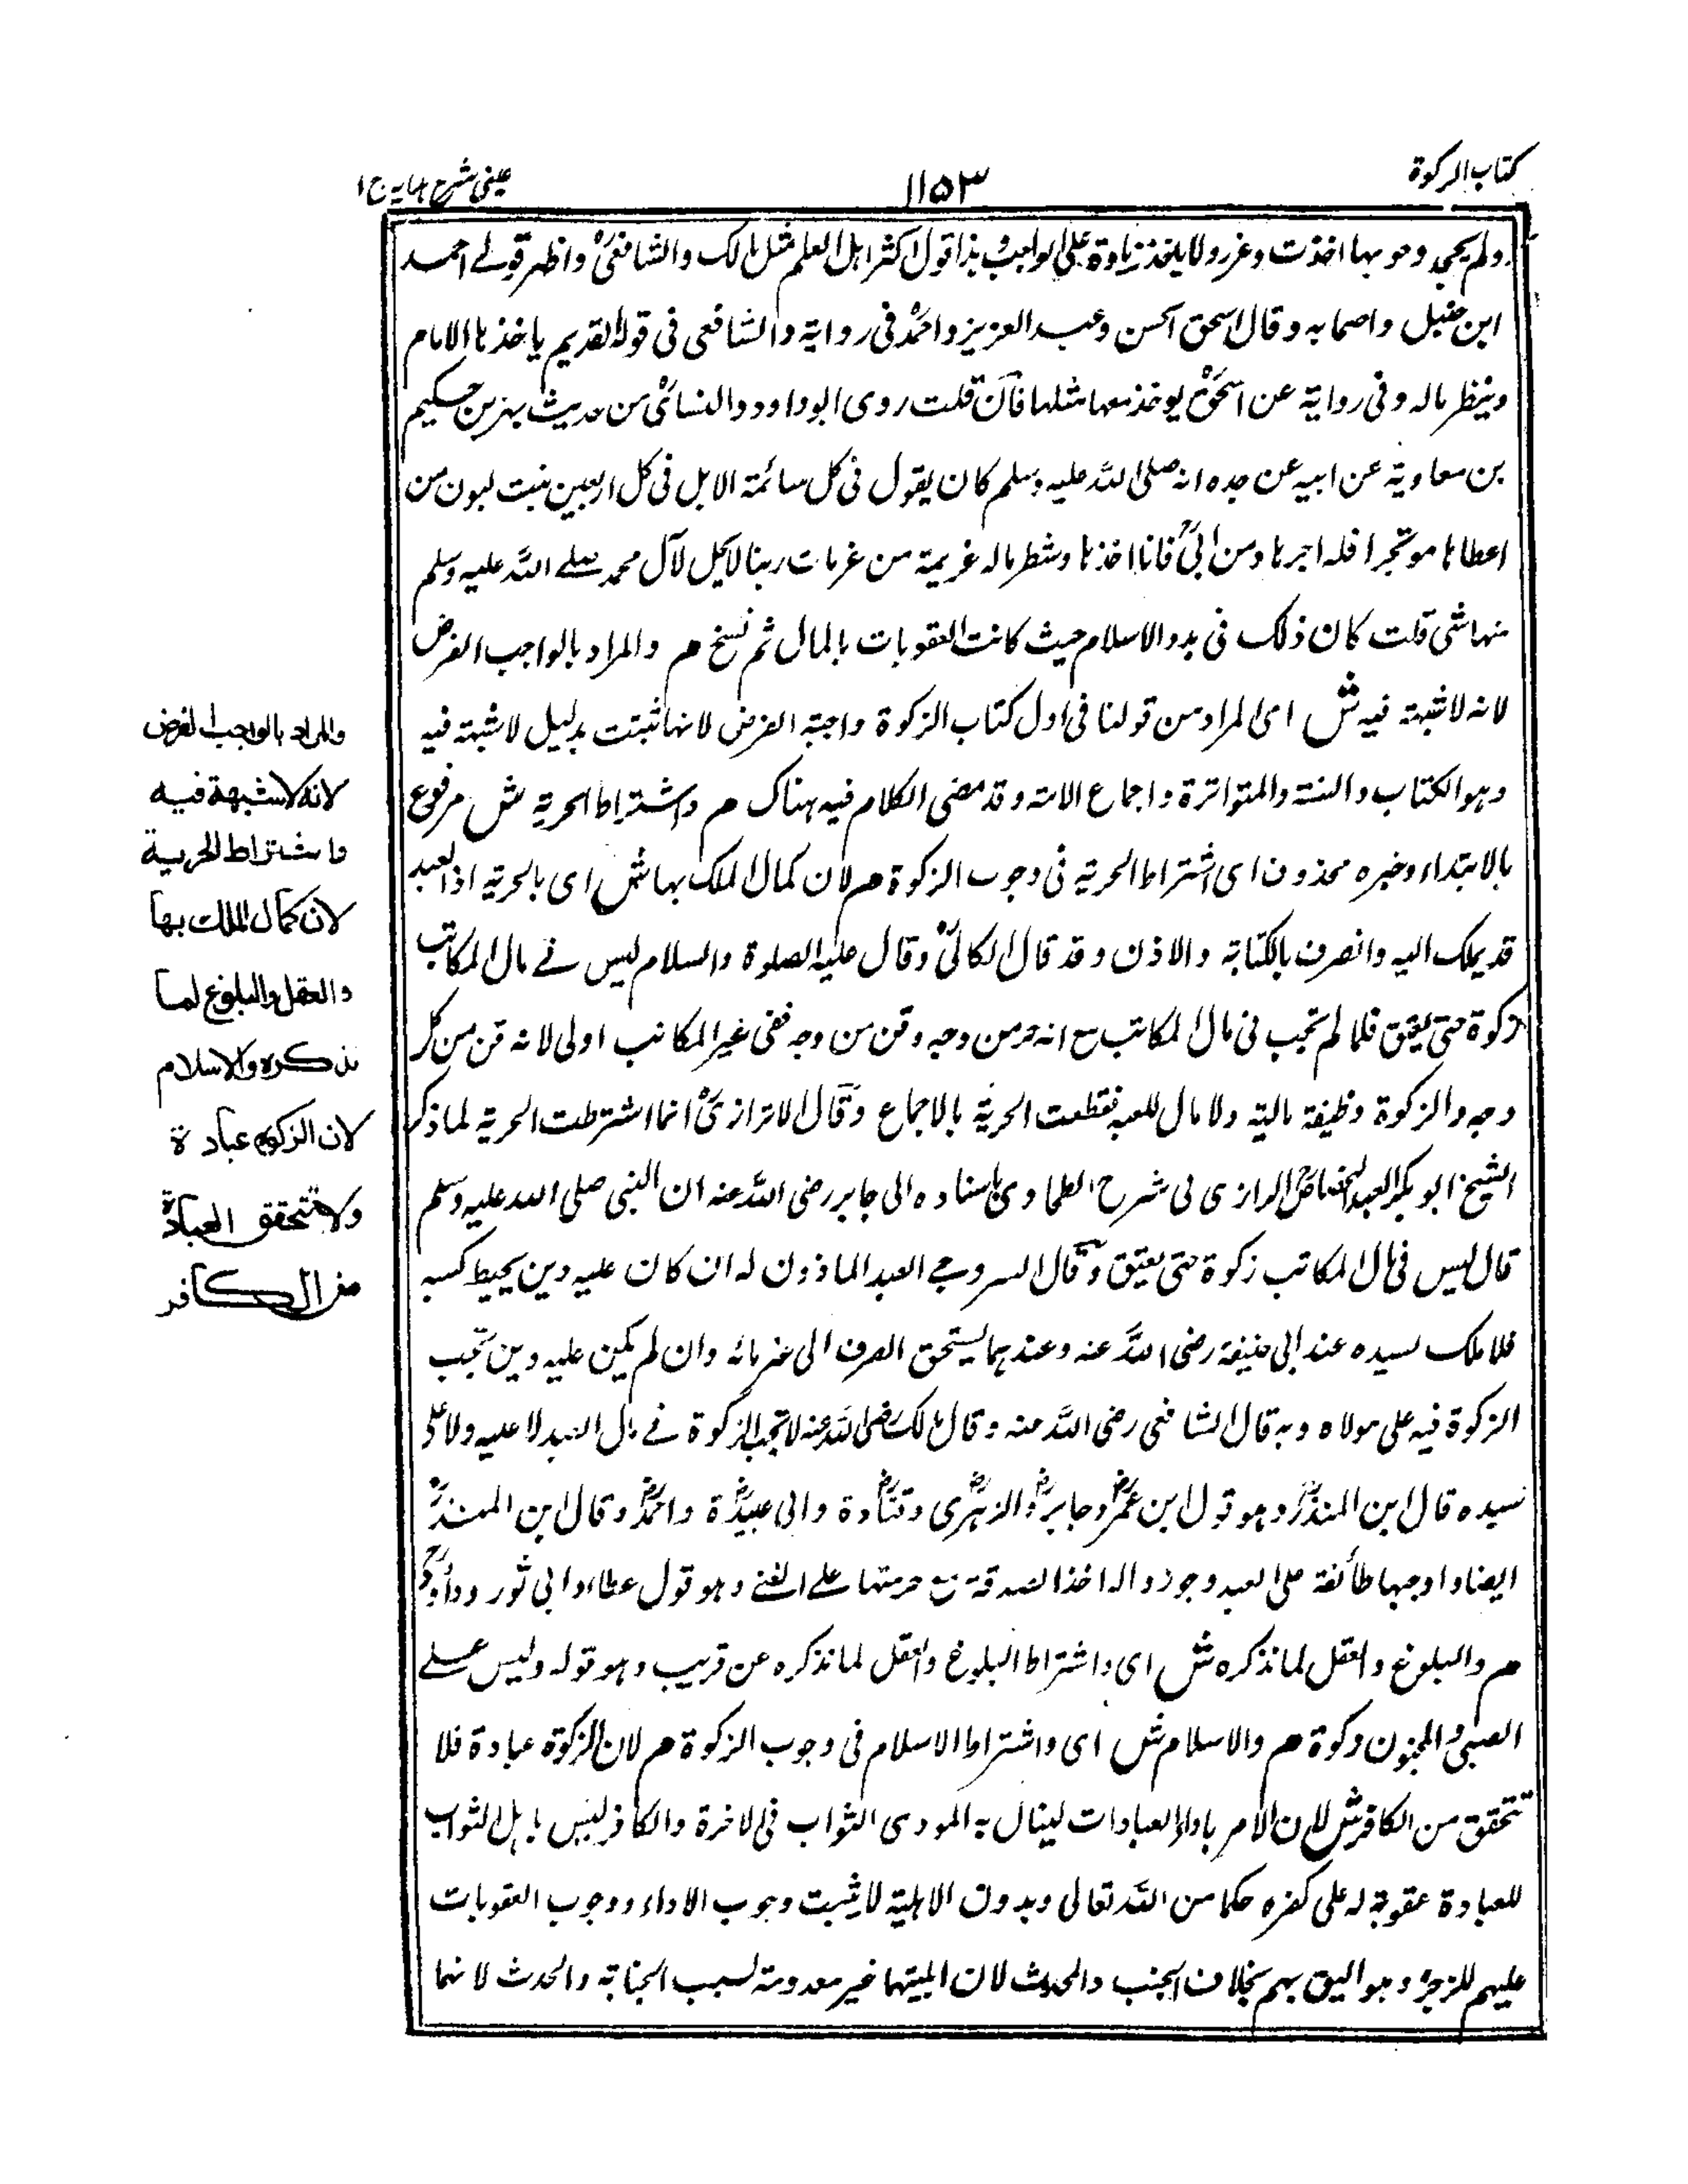 كتاب الزكوة
١١٥٣
عينى شرح هدايه ج ١
ولم يجحد وجوبها اخذت وعزر ولا ياخذ زيادة على الواجب وهذا قول اكثر اهل العلم مثل مالك والشافعى واظهر قولى احمد
ابن حنبل واصحابه وقال اسحق الحسن وعبد العزيز واحمد فى رواية والشافعى فى قوله القديم ياخذها الامام
وينظر ماله وفى رواية عن اسحق يوخذ معها مثلها فان قلت روى ابو داود والنسائى من حديث بهز بن حكيم
بن معاوية عن ابيه عن جده انه صلى الله عليه وسلم كان يقول فى كل سائمة الابل فى كل اربعين بنت لبون من
اعطاها موتجرا فله اجرها ومن ابى فانا اخذها وشطر ماله عزيمة من عزمات ربنا لا يحل لآل محمد صلى الله عليه وسلم
منها شى قلت كان ذلك فى بدو الاسلام حيث كانت العقوبات بالمال ثم نسخ م والمراد بالواجب الفرض
لانه لا شبهة فيه ش اى المراد من قولنا فى اول كتاب الزكوة واجبة الفرض لانها ثبتت بدليل لا شبهة فيه
وهو الكتاب والسنة والمتواترة واجماع الامة وقد مضى الكلام فيه هناك م واشتراط الحرية ش مرفوع
بالابتداء وخبره محذوف اى اشتراط الحرية فى وجوب الزكوة م لان كمال الملك بها ش اى بالحرية اذ العبد
قد يملك اليه والصرف بالكتابة والاذن وقد قال الكاكى وقال عليه الصلوة والسلام ليس فى مال المكاتب
زكوة حتى يعتق فلما لم تجب فى مال المكاتب مع انه حر من وجه وقن من وجه ففى غير المكاتب اولى لانه قن من كل
وجه والزكوة وظيفة مالية ولا مال للعبد فقطعت الحرية بالاجماع وقال الاترازى انما اشترطت الحرية لما ذكر
الشيخ ابو بكر العبد الجصاص الرازى فى شرح الطحاوى باسناده الى جابر رضى الله عنه ان النبى صلى الله عليه وسلم
قال ليس فى مال المكاتب زكوة حتى يعتق وقال السروجى العبد الماذون له ان كان عليه دين يحيط كسبه
فلا ملك لسيده عند ابى حنيفة رضى الله عنه وعندهما يستحق الصرف الى غرمائه وان لم يكن عليه دين تجب
الزكوة فيه على مولاه وبه قال الشافعى رضى الله عنه وقال مالك رضى الله عنه لا تجب الزكوة فى مال العبد لا عليه ولا على
سيده قال ابن المنذر وهو قول ابن عمر وجابر والزهرى وقتادة وابى عبيدة واحمد وقال ابن المنذر
ايضا واوجبها طائفة على العبد وجوزوا له اخذ الصدقة مع حرمتها على الغنى وهو قول عطاء وابى ثور وداؤد
م والبلوغ والعقل لما نذكره ش اى واشتراط البلوغ والعقل لما نذكره عن قريب وهو قوله وليس على
الصبى والمجنون زكوة م والاسلام ش اى واشتراط الاسلام فى وجوب الزكوة م لان الزكوة عبادة فلا
تتحقق من الكافر ش لان الامر باداء العبادات لينال به المودى الثواب فى الاخرة والكافر ليس باهل لثواب
للعبادة عقوبة له على كفره حكما من الله تعالى وبدون الاهلية لا يثبت وجوب الاداء ووجوب العقوبات
عليهم للزجر وهو اليق بهم بخلاف الجنب والمحدث لان اهليتهما غير معدومة لسبب الجنابة والحدث لانهما
والمراد بالواجب الفرض
لانه لا شبهة فيه
واشتراط الحرية
لان كمال الملك بها
والعقل والبلوغ لما
نذكره والاسلام
لان الزكوة عبادة
ولا تتحقق العبادة
من الكافر